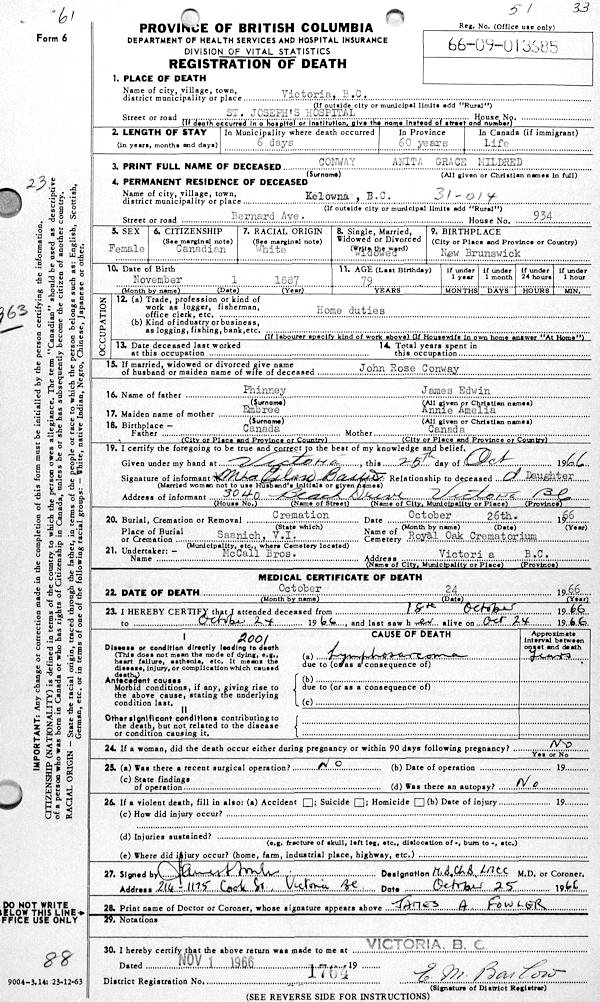 61
51 33
Form 6
PROVINCE OF BRITISH COLUMBIA
DEPARTMENT OF HEALTH SERVICES AND HOSPITAL INSURANCE
DIVISION OF VITAL STATISTICS
REGISTRATION OF DEATH
Reg. No. (Office use only)
66-09-013685
1. PLACE OF DEATH
Name of city, village, town, district municipality or place Victoria, B.C.
(If outside city or municipal limits add "Rural")
Street or road ST. JOSEPH'S HOSPITAL House No.
(If death occurred in a hospital or institution, give the name instead of street and number)
2. LENGTH OF STAY In Municipality where death occurred In Province In Canada (if immigrant)
(in years, months and days) 6 days 60 years Life
3. PRINT FULL NAME OF DECEASED CONWAY ANITA GRACE MILDRED
(Surname) (All given or Christian names in full)
4. PERMANENT RESIDENCE OF DECEASED
Name of city, village, town, district municipality or place Kelowna, B.C. 31-014
(If outside city or municipal limits add "Rural")
Street or road Bernard Ave. House No. 934
5. SEX 6. CITIZENSHIP 7. RACIAL ORIGIN 8. Single, Married, Widowed or Divorced 9. BIRTHPLACE
(See marginal note) (See marginal note) (Write the word) (City or Place and Province or Country)
Female Canadian White Widowed New Brunswick
10. Date of Birth 11. AGE (Last Birthday) If under 1 year If under 1 month If under 24 hours If under 1 hour
November 1 1887 79
(Month by name) (Date) (Year) YEARS MONTHS DAYS HOURS MIN.
OCCUPATION
12. (a) Trade, profession or kind of work as logger, fisherman, office clerk, etc. Home duties
(b) Kind of industry or business, as logging, fishing, bank, etc.
(If labourer specify kind of work above) (If Housewife in own home answer "At Home")
13. Date deceased last worked at this occupation 14. Total years spent in this occupation
15. If married, widowed or divorced give name of husband or maiden name of wife of deceased John Rose Conway
16. Name of father Phinney James Edwin
(Surname) (All given or Christian names)
17. Maiden name of mother Embree Annie Amelia
(Surname) (All given or Christian names)
18. Birthplace – Father Canada Mother Canada
(City or Place and Province or Country) (City or Place and Province or Country)
19. I certify the foregoing to be true and correct to the best of my knowledge and belief,
Given under my hand at Victoria, this 25th day of Oct 1966
Signature of informant Mrs Relationship to deceased A Daughter
(Married woman not to use Husband's initials or given names)
Address of informant 3040 Beach Drive Victoria BC
(House No.) (Name of Street) (Name of City, Municipality or Place) (Province)
20. Burial, Cremation or Removal Cremation Date October 26th. 1966
(State which) (Month by name) (Date) (Year)
Place of Burial or Cremation Saanich, V.I. Name of Cemetery Royal Oak Crematorium
(Municipality, etc., where Cemetery located)
21. Undertaker: – Name McCall Bros. Address Victoria B.C.
(Name of City, Municipality or Place) (Province)
MEDICAL CERTIFICATE OF DEATH
22. DATE OF DEATH October 24 1966
(Month by name) (Date) (Year)
23. I HEREBY CERTIFY that I attended deceased from 18th October 1966
to October 24 1966, and last saw her alive on Oct 24 1966
I 2001 CAUSE OF DEATH Approximate interval between onset and death
Disease or condition directly leading to death (a) Lymphosarcoma years
(This does not mean the mode of dying, e.g., heart failure, asthenia, etc. It means the disease, injury, or complication which caused death.) due to (or as a consequence of)
Antecedent causes (b)
Morbid conditions, if any, giving rise to the above cause, stating the underlying condition last. due to (or as a consequence of)
(c)
II
Other significant conditions contributing to the death, but not related to the disease or condition causing it.
24. If a woman, did the death occur either during pregnancy or within 90 days following pregnancy? No
Yes or No
25. (a) Was there a recent surgical operation? No (b) Date of operation 19
(c) State findings of operation (d) Was there an autopsy? No
26. If a violent death, fill in also: (a) Accident ; Suicide ; Homicide (b) Date of injury 19
(c) How did injury occur?
(d) Injuries sustained?
(e.g. fracture of skull, left leg, etc., dislocation of -, burn to -, etc.)
(e) Where did injury occur? (home, farm, industrial place, highway, etc.)
27. Signed by Designation M.B.Ch.B. LMCC M.D. or Coroner.
Address 214-1175 Cook St. Victoria BC Date October 25 1966
28. Print name of Doctor or Coroner, whose signature appears above JAMES A FOWLER
29. Notations
30. I hereby certify that the above return was made to me at VICTORIA, B. C.
Dated NOV 1 1966 19
District Registration No. 1764 E M Barlow
(Signature of District Registrar)
(SEE REVERSE SIDE FOR INSTRUCTIONS)
23
963
IMPORTANT: Any change or correction made in the completion of this form must be initialled by the person certifying the information.
CITIZENSHIP (NATIONALITY) is defined in terms of the country to which the person owes allegiance. The term "Canadian" should be used as descriptive of a person who was born in Canada or who has rights of Citizenship in Canada, unless he or she has subsequently become the citizen of another country.
RACIAL ORIGIN – State the racial origin, traced through the father, in terms of the people or race to which the person belongs such as: English, Scottish, German, etc. or in terms of one of the following racial groups: – White, native Indian, Negro, Chinese, Japanese or other.
DO NOT WRITE
BELOW THIS LINE
OFFICE USE ONLY
88
9004-3.14: 23-12-63